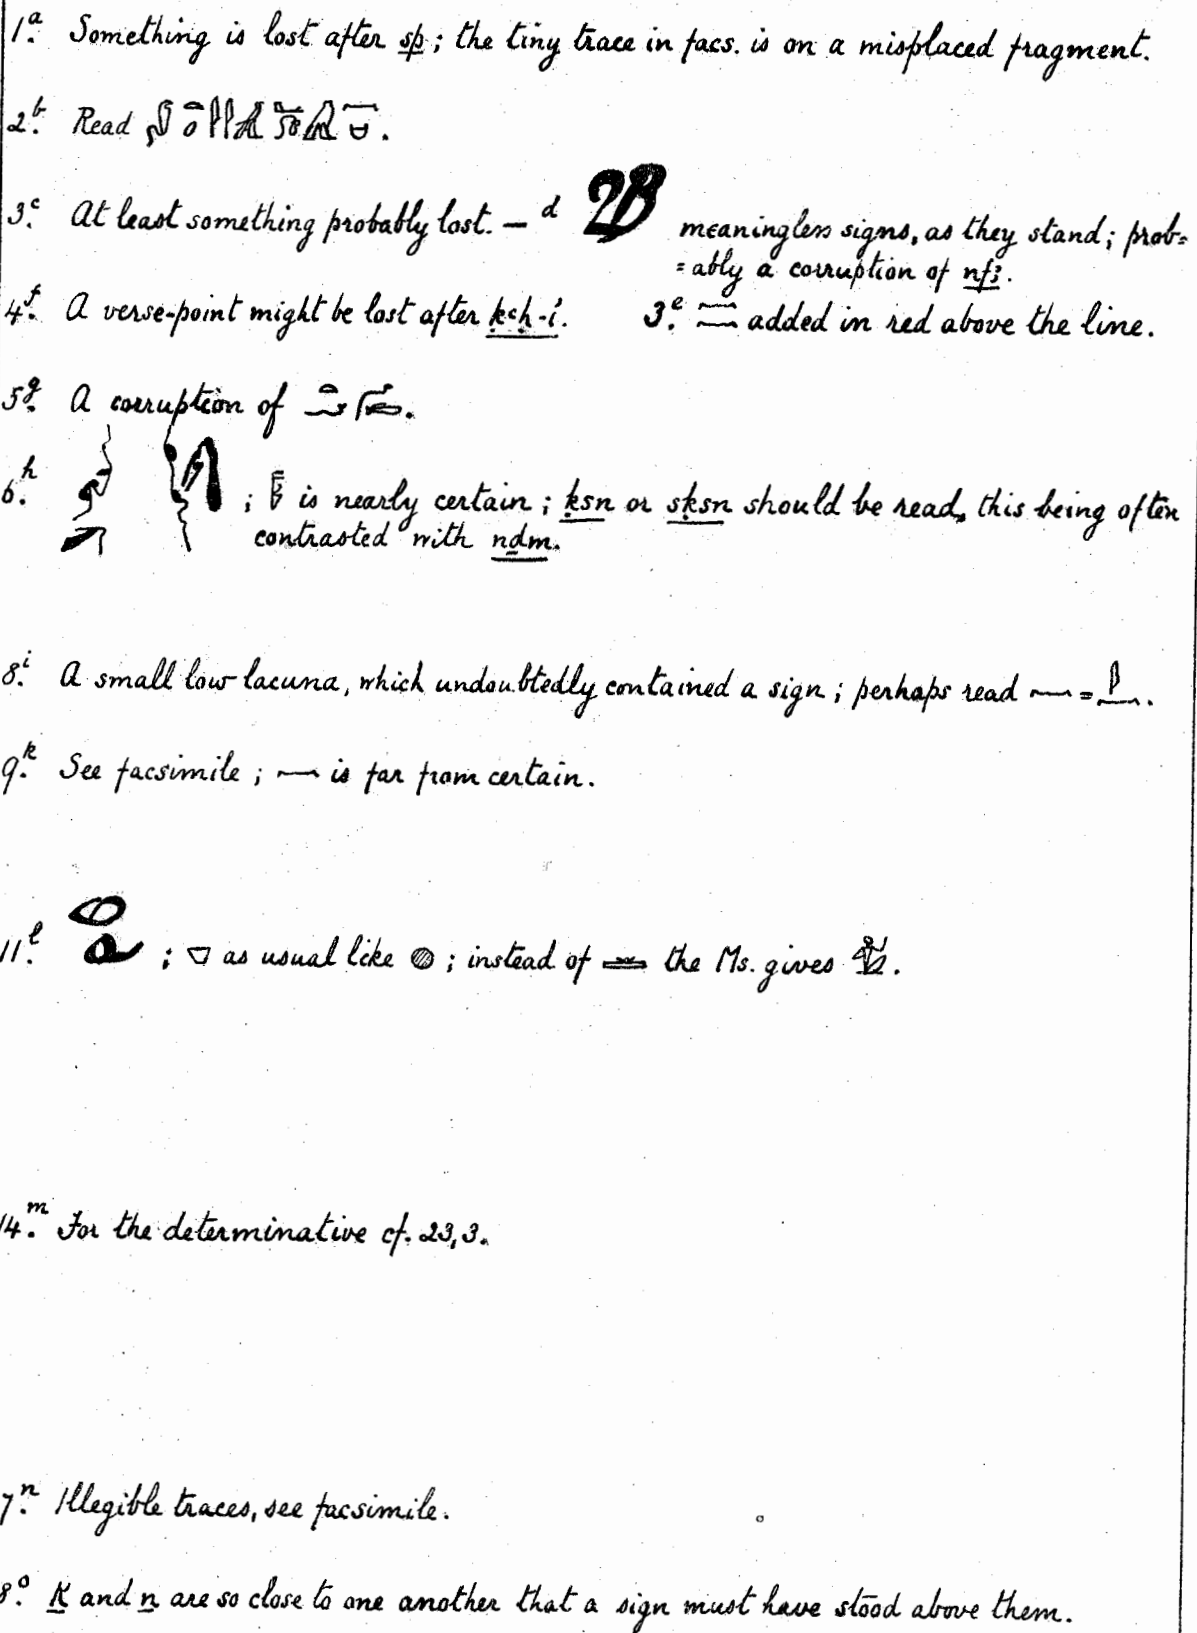 1.ᵃ Something is lost after sp; the tiny trace in facs. is on a misplaced fragment.
2.ᵇ Read .
3.ᶜ At least something probably lost. — ᵈ meaningless signs, as they stand; prob=
=ably a corruption of nfꜣ.
4.ᶠ A verse-point might be lost after ḳꜥḥ-i. 3.ᵉ added in red above the line.
5.ᵍ A corruption of .
6.ʰ ; is nearly certain; ḳsn or sḳsn should be read, this being often
contrasted with nḏm.
8.ⁱ A small low lacuna, which undoubtedly contained a sign; perhaps read = .
9.ᵏ See facsimile; is far from certain.
11.ˡ ; as usual like ; instead of the Ms. gives .
14.ᵐ For the determinative cf. 23,3.
7.ⁿ Illegible traces, see facsimile.
8.ᵒ K and n are so close to one another that a sign must have stood above them.